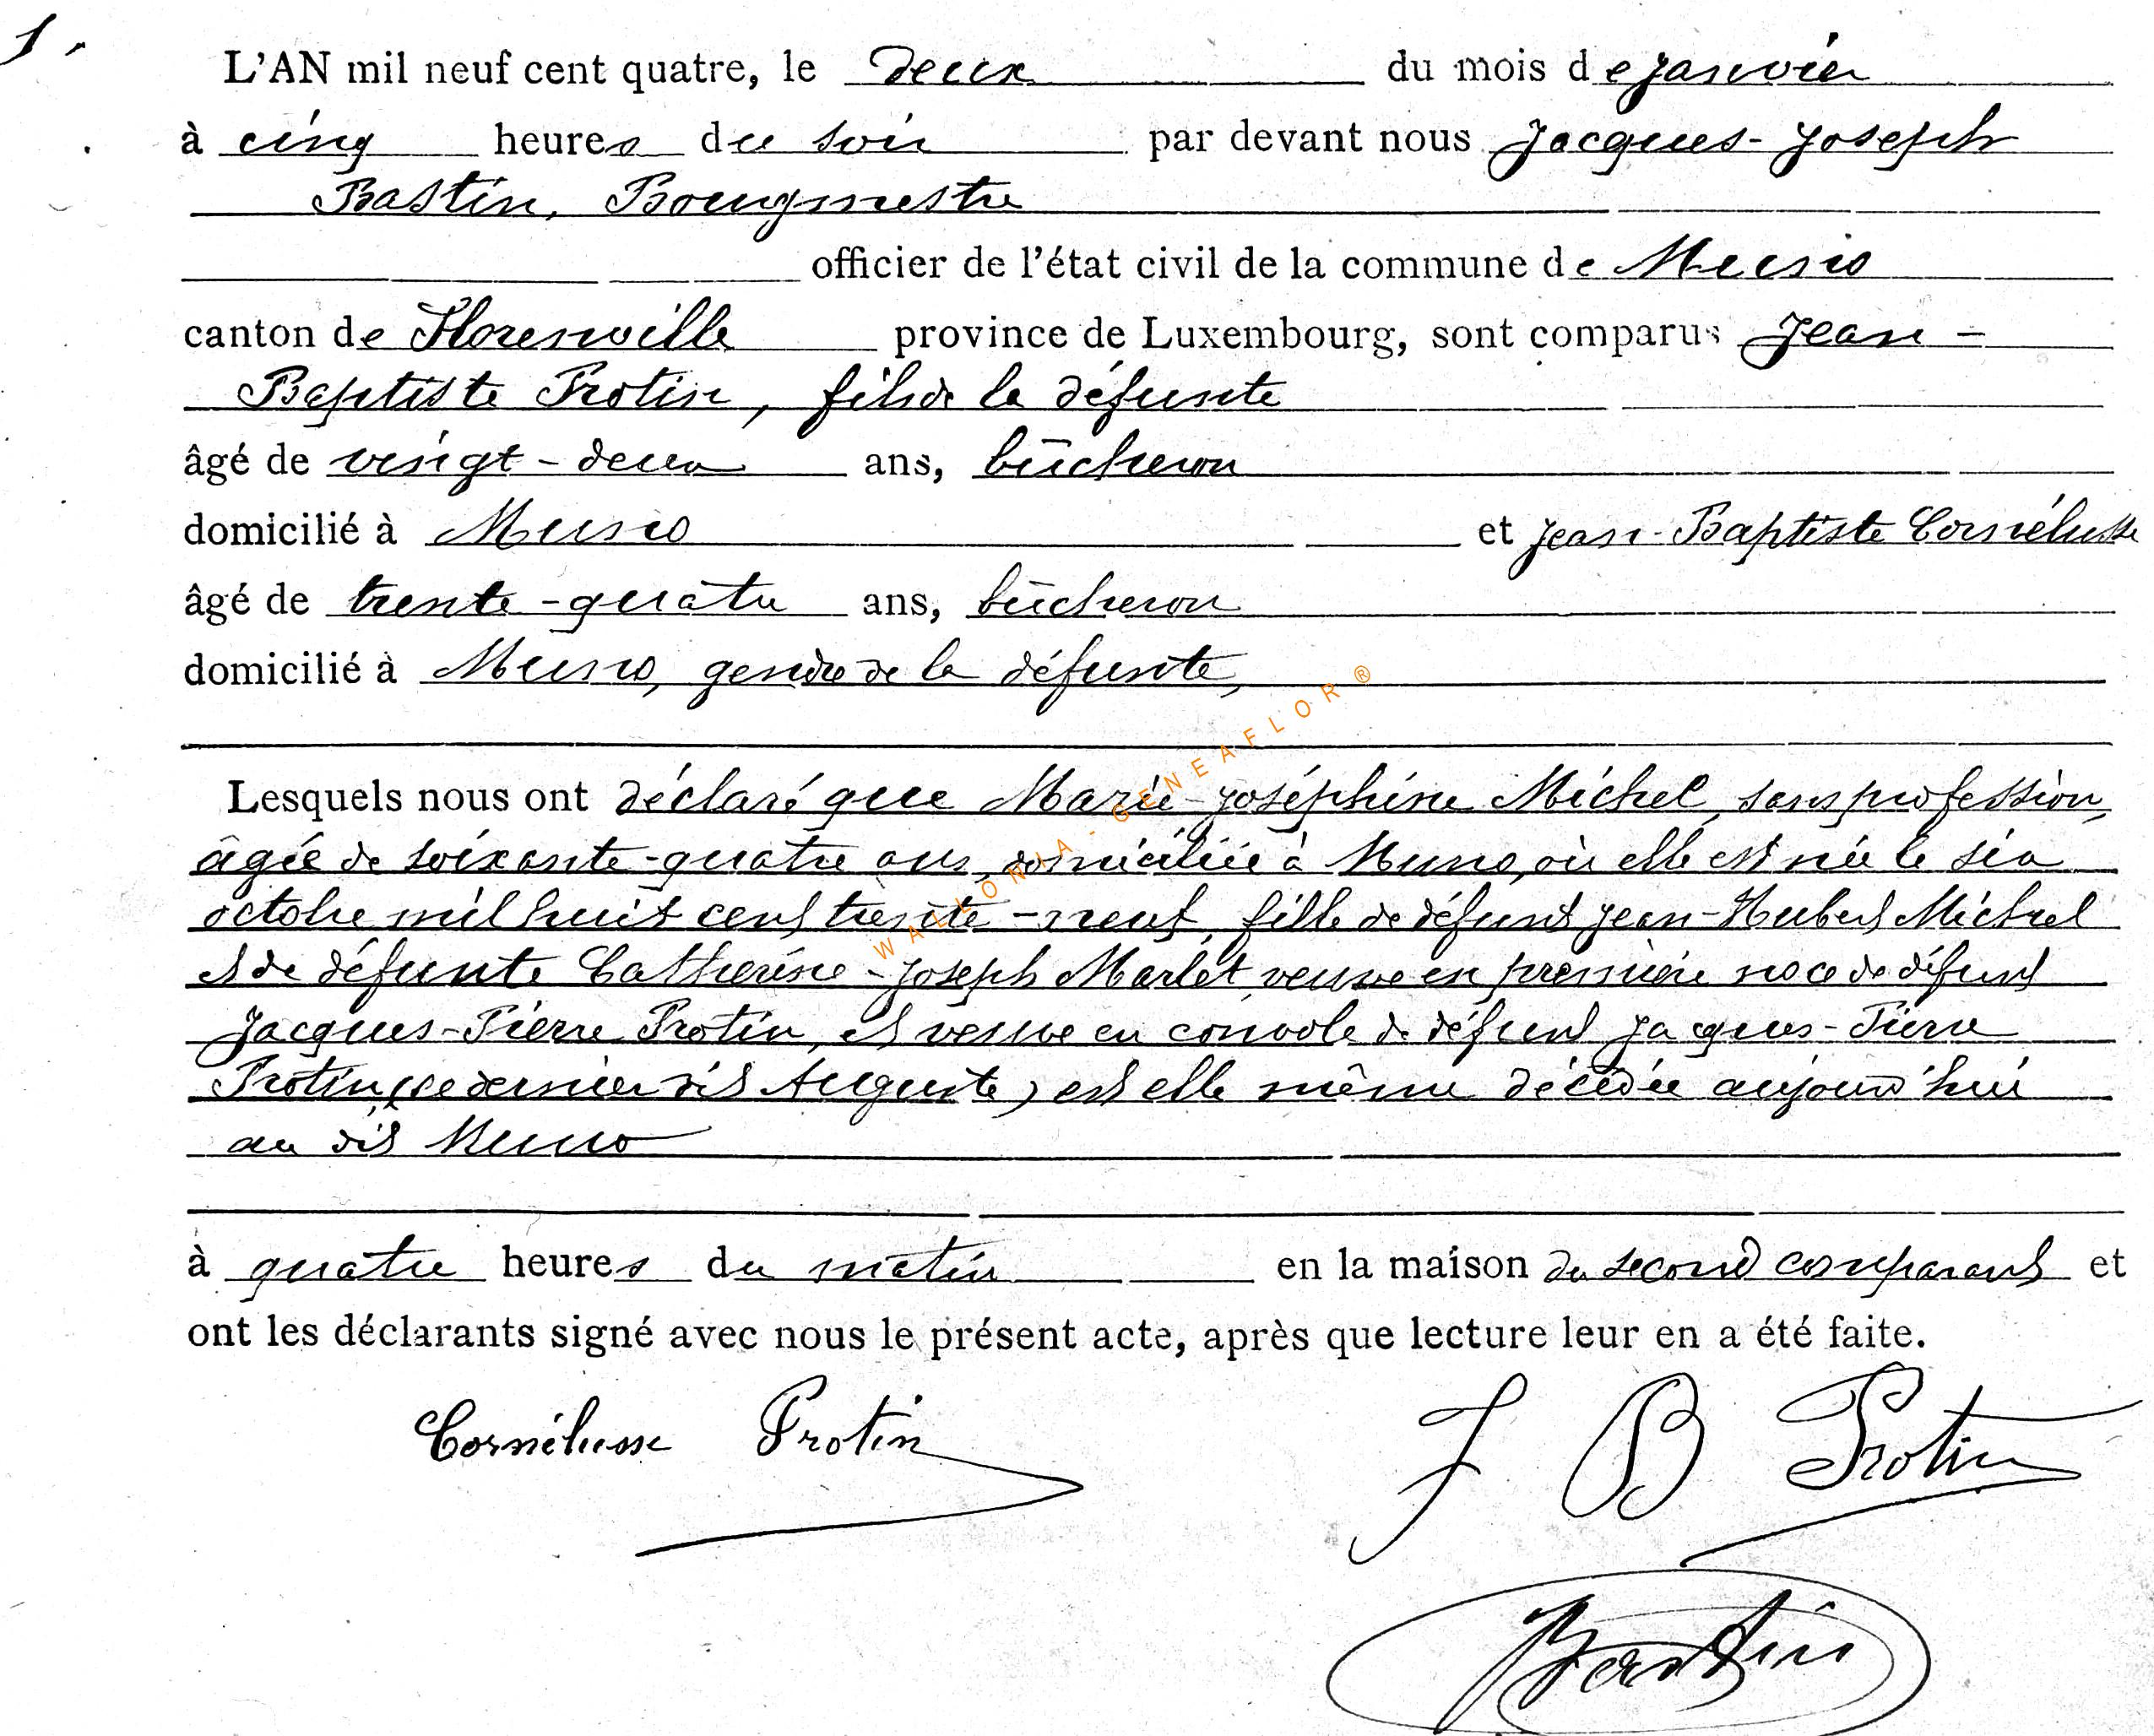 1.
L'AN mil neuf cent quatre, le deux du mois de janvier
à cinq heures du soir par devant nous Jacques-Joseph
Bastin, Bourgmestre
officier de l'état civil de la commune de Muno
canton de Florenville province de Luxembourg, sont comparus Jean-
Baptiste Protin, fils de la défunte
âgé de vingt-deux ans, bûcheron
domicilié à Muno et Jean-Baptiste Cornélusse
âgé de trente-quatre ans, bûcheron
domicilié à Muno, gendre de la défunte,
Lesquels nous ont déclaré que Marie-Joséphine Michel, sans profession,
âgée de soixante-quatre ans, domiciliée à Muno, où elle est née le six
octobre mil huit cent trente-neuf, fille de défunt Jean-Hubert Michel
et de défunte Catherine-Joseph Marlet, veuve en première noce de défunt
Jacques-Pierre Protin, et veuve en convole de défunt Jacques-Pierre
Protin (ce dernier dit Auguste) est elle même décédée aujourd'hui
au dit Muno
à quatre heures du matin en la maison du second comparant et
ont les déclarants signé avec nous le présent acte, après que lecture leur en a été faite.
Cornélusse Protin J B Protin
Bastin
WALLONIA-GENEAFLOR®